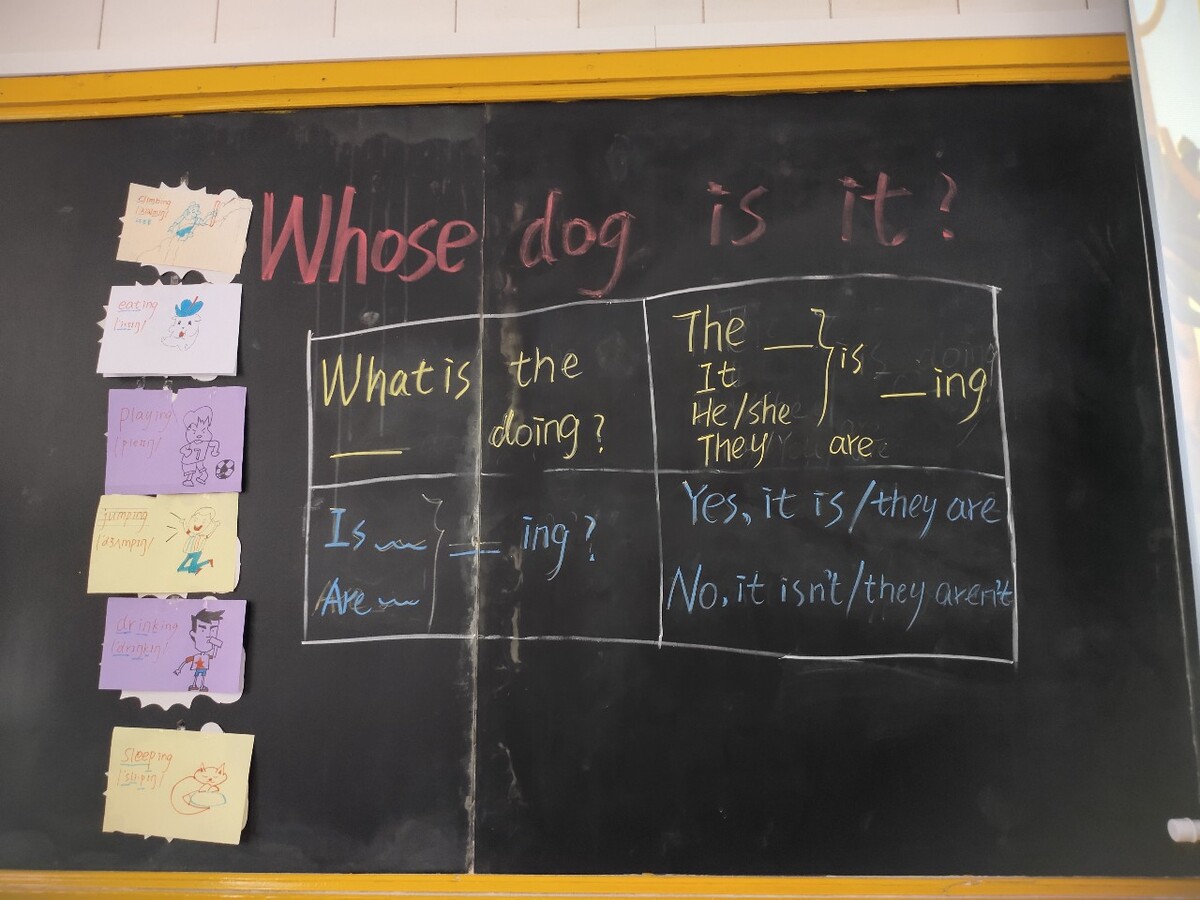 Whose dog is it?
climbing
eating
playing
jumping
/dʒʌmpiŋ/
drinking
/driŋkiŋ/
sleeping
/sli:piŋ/
What is the
___ doing?
The ___ } is ___ing
It
He/she
They are
Is ﹏ } ___ ing?
Are ﹏
Yes, it is/they are
No, it isn't/they aren't